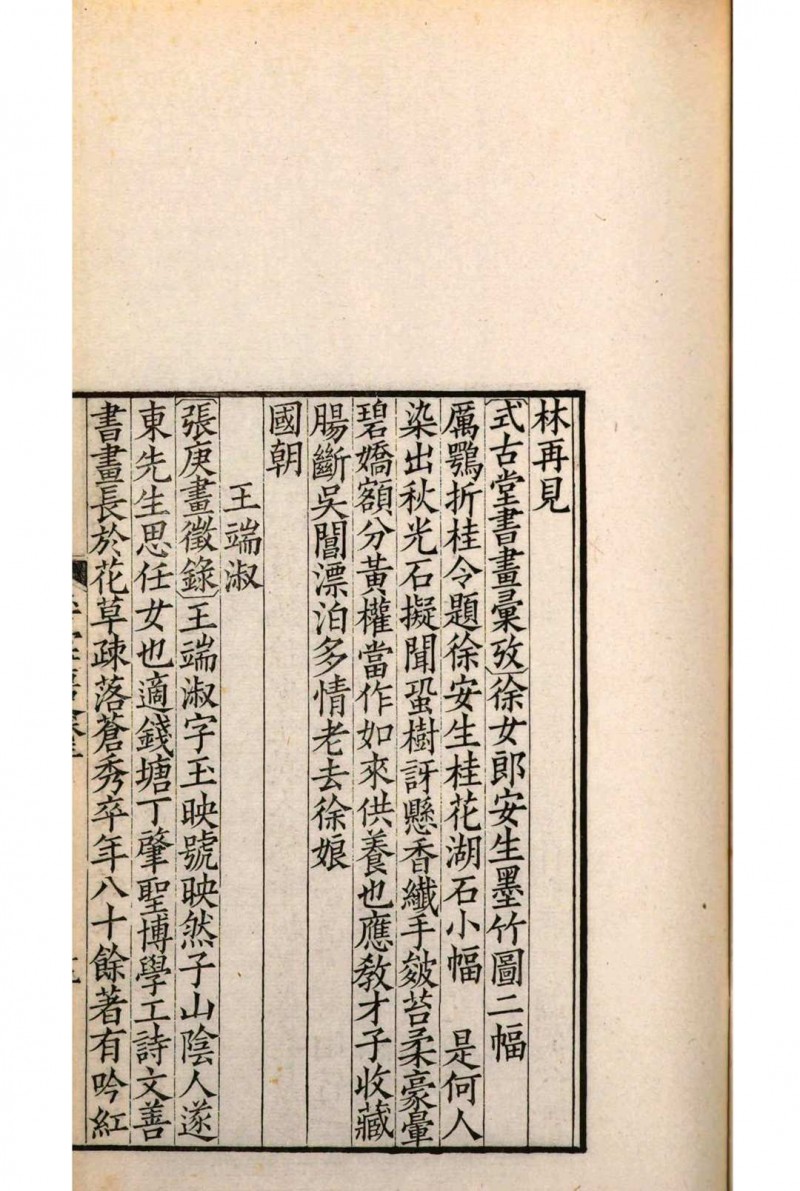 林再見
〔式古堂書畫彙攷〕徐女郎安生墨竹圖二幅
厲鶚折桂令題徐安生桂花湖石小幅　是何人
染出秋光石擬聞蛩樹訝懸香纖手皴苔柔豪暈
碧嬌額分黃權當作如來供養也應教才子收藏
腸斷吳閶漂泊多情老去徐娘
國朝
王端淑
〔張庚畫徵錄〕王端淑字玉映號映然子山陰人遂
東先生思任女也適錢塘丁肇聖博學工詩文善
書畫長於花草疎落蒼秀卒年八十餘著有吟紅